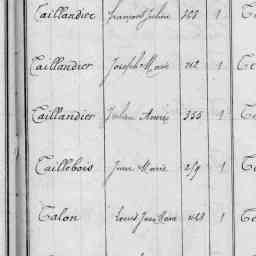 Taillandier François Julien 1
Taillandier Joseph Marie 212 1 Te
Taillandier Julien Année 355 1 Te
Taillebois Jean Marie 219 1 Te
Talon Louis Jean Marie 1 Te